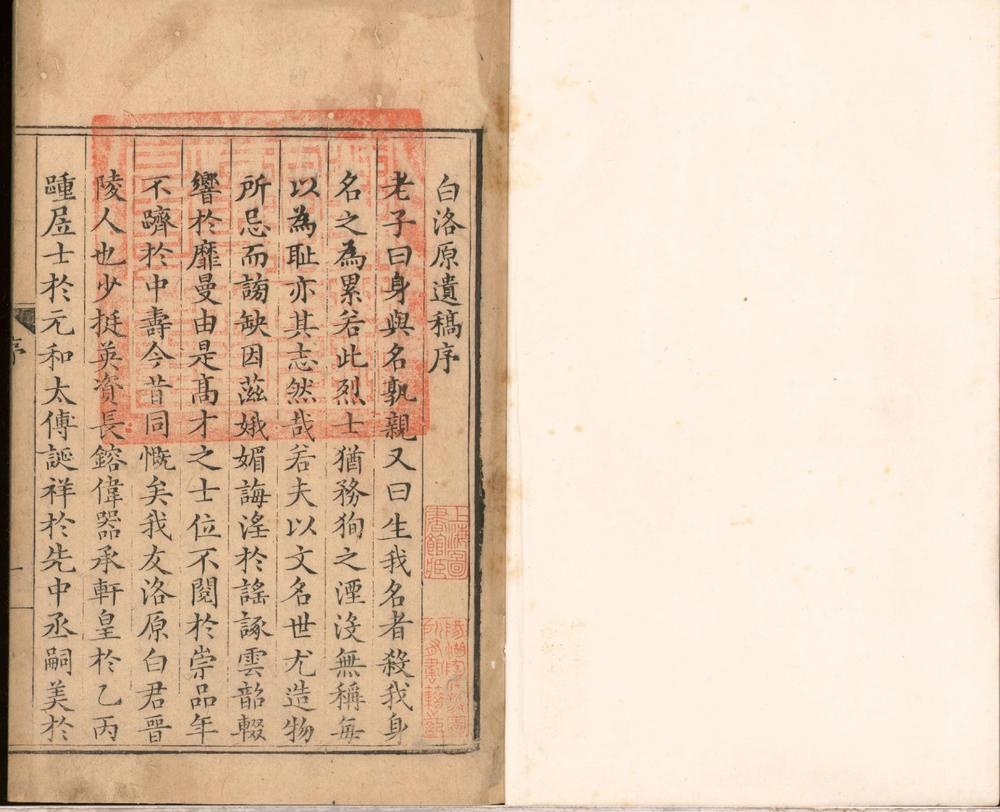 白洛原遺稿序
老子曰身與名孰親又曰生我名者殺我身
名之為累若此烈士猶務狥之湮沒無稱每
以為恥亦其志然哉若夫以文名世尤造物
所忌而謭缺因茲娥媚誨滛於謠諑雲韶輟
響於靡曼由是髙才之士位不閱於崇品年
不躋於中壽今昔同慨矣我友洛原白君晋
陵人也少挺英資長鎔偉器承軒皇於乙丙
踵居士於元和太傅誕祥於先中丞嗣美於
序
一
上海圖
書館藏